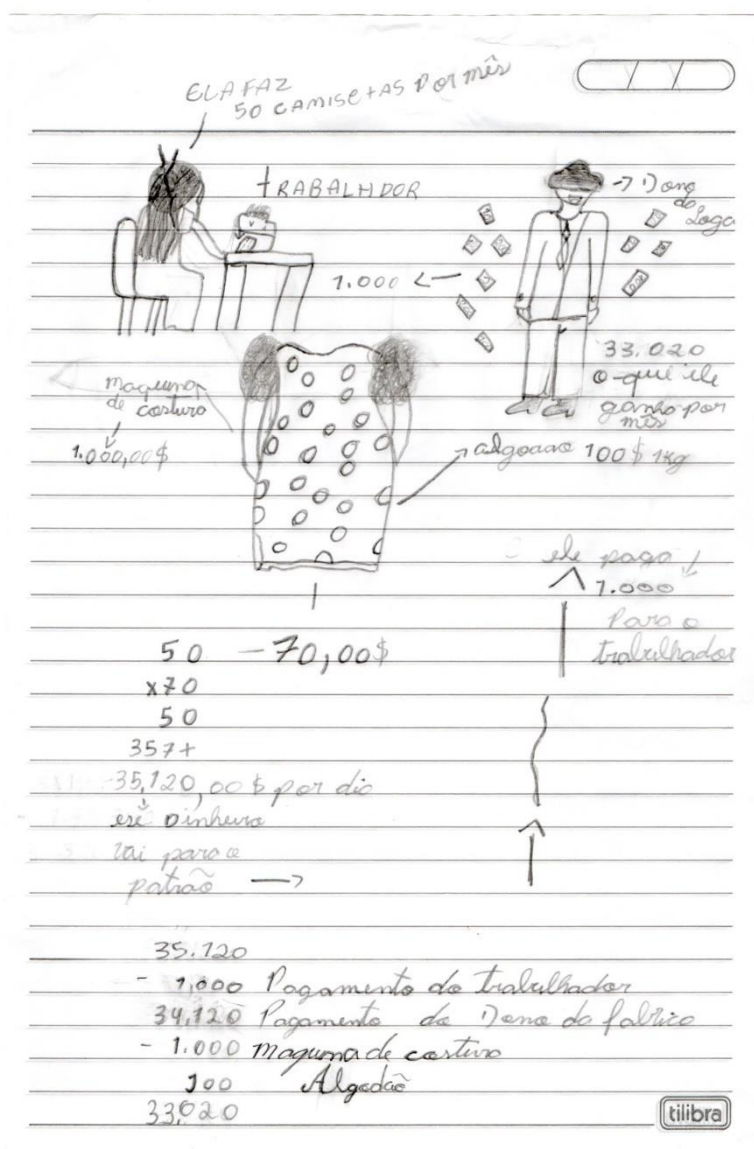 ELA FAZ
50 CAMISETAS Por mês
tRABALHDOR
-> Dono
do
Loga
1.000 <-
33.020
o que ele
ganha por
mês
maquina
de costura
1.000,00$
algodao 100$ 1kg
ele paga
1.000
Para o
trabalhador
50 - 70,00$
x70
50
357+
35,120,00$ por dia
ese Dinheiro
vai para o
patrão ->
35.120
- 1,000 Pagamento do trabalhador
34,120 Pagamento do Dono da fabrica
- 1.000 maquina de costura
100 Algodão
33,020
tilibra